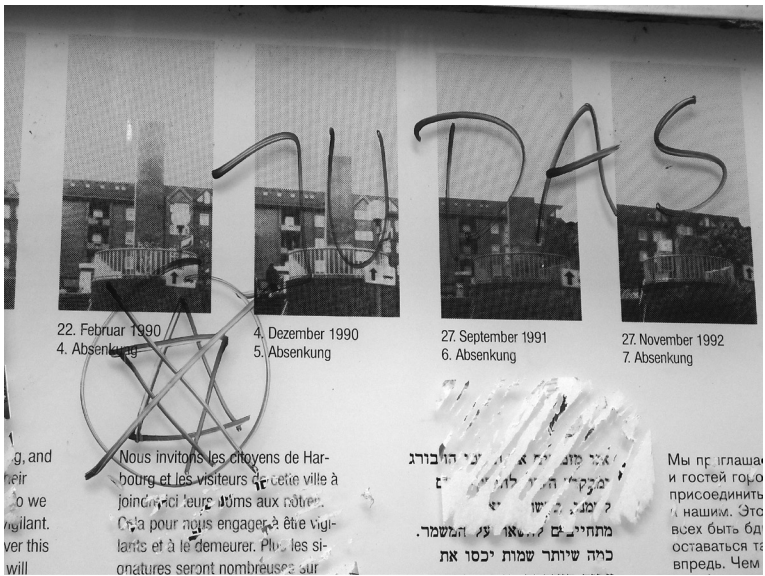 JUDAS
22. Februar 1990
4. Absenkung
4. Dezember 1990
5. Absenkung
27. September 1991
6. Absenkung
27. November 1992
7. Absenkung
g, and
heir
o we
vigilant.
ver this
will
Nous invitons les citoyens de Har-
bourg et les visiteurs de cette ville à
joindre ici leurs noms aux nôtres.
Cela pour nous engager à être vigi-
lants et à le demeurer. Plus les si-
gnatures seront nombreuses sur
אנו מזמינים הרבורג
מתחייבים להשאר על המשמר.
כויה שיותר שמות יכסו את
Мы приглашае
и гостей горо
присоединить
к нашим. Это
всех быть бд
оставаться та
впредь. Чем